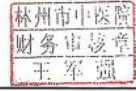 林州市中医院
财务审核章
王军强